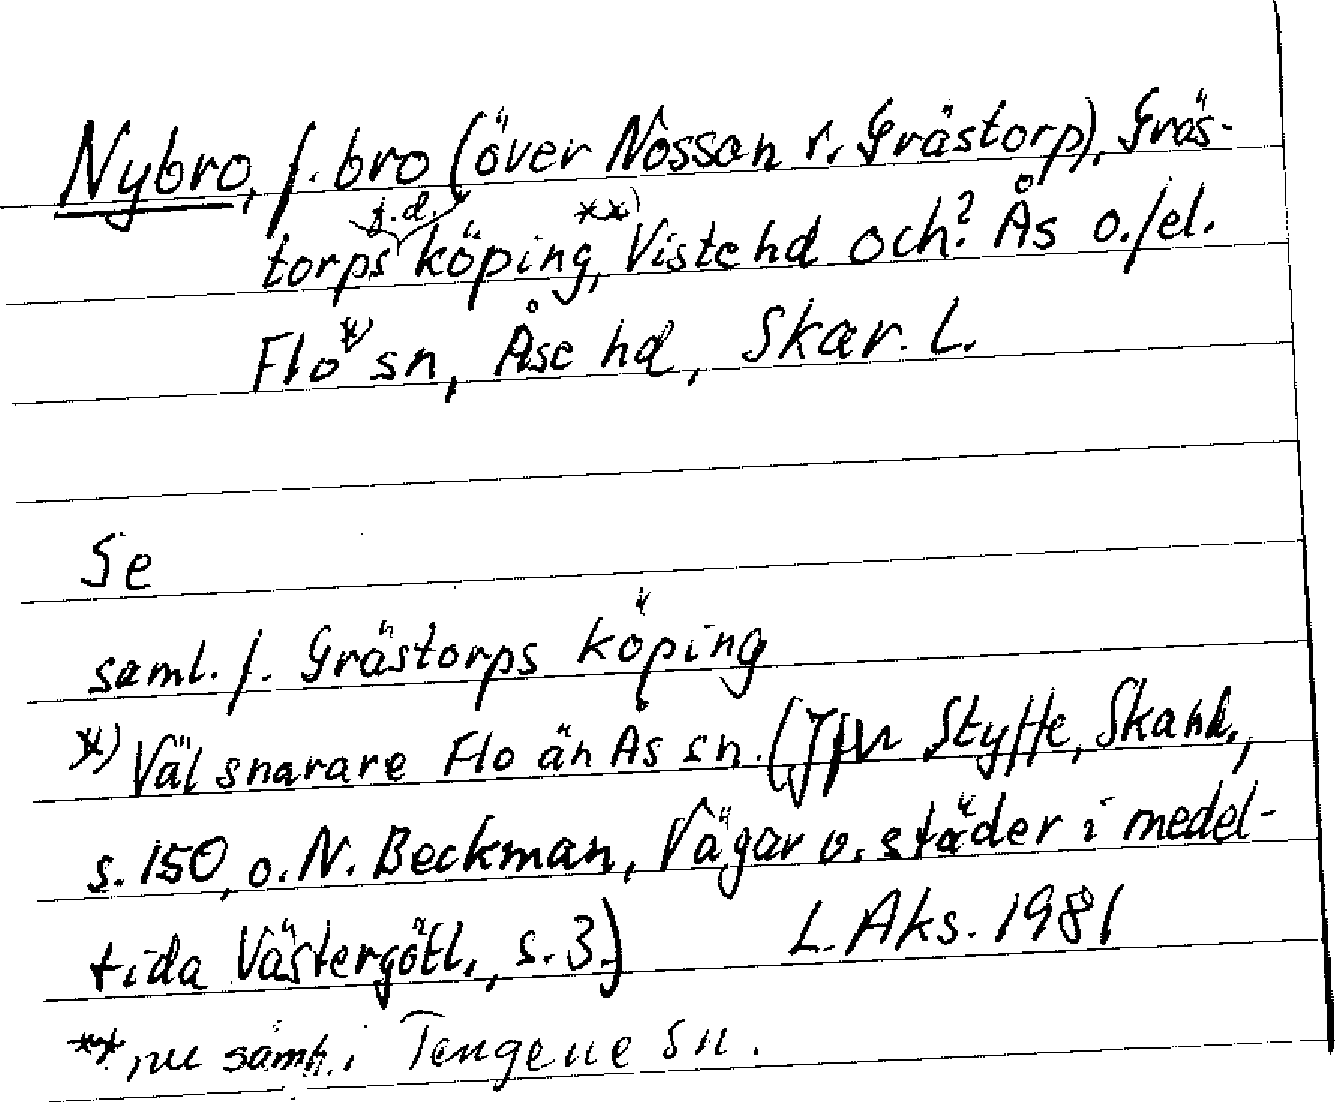 Nybro, f. bro (över Nossan v. Grästorp), Gräs-
f.d.
torps köping, **) Viste hd och? Ås o./el.
Flo *) sn, Åse hd, Skar. L.
Se
saml. f. Grästorps köping
*) Väl snarare Flo än As sn. (Jfr Styffe, Skand.,
s. 150, o. N. Beckman, Vägar o. städer i medel-
tida Västergötl., s. 3.) L. Aks. 1981
** nu i Tengene sn.